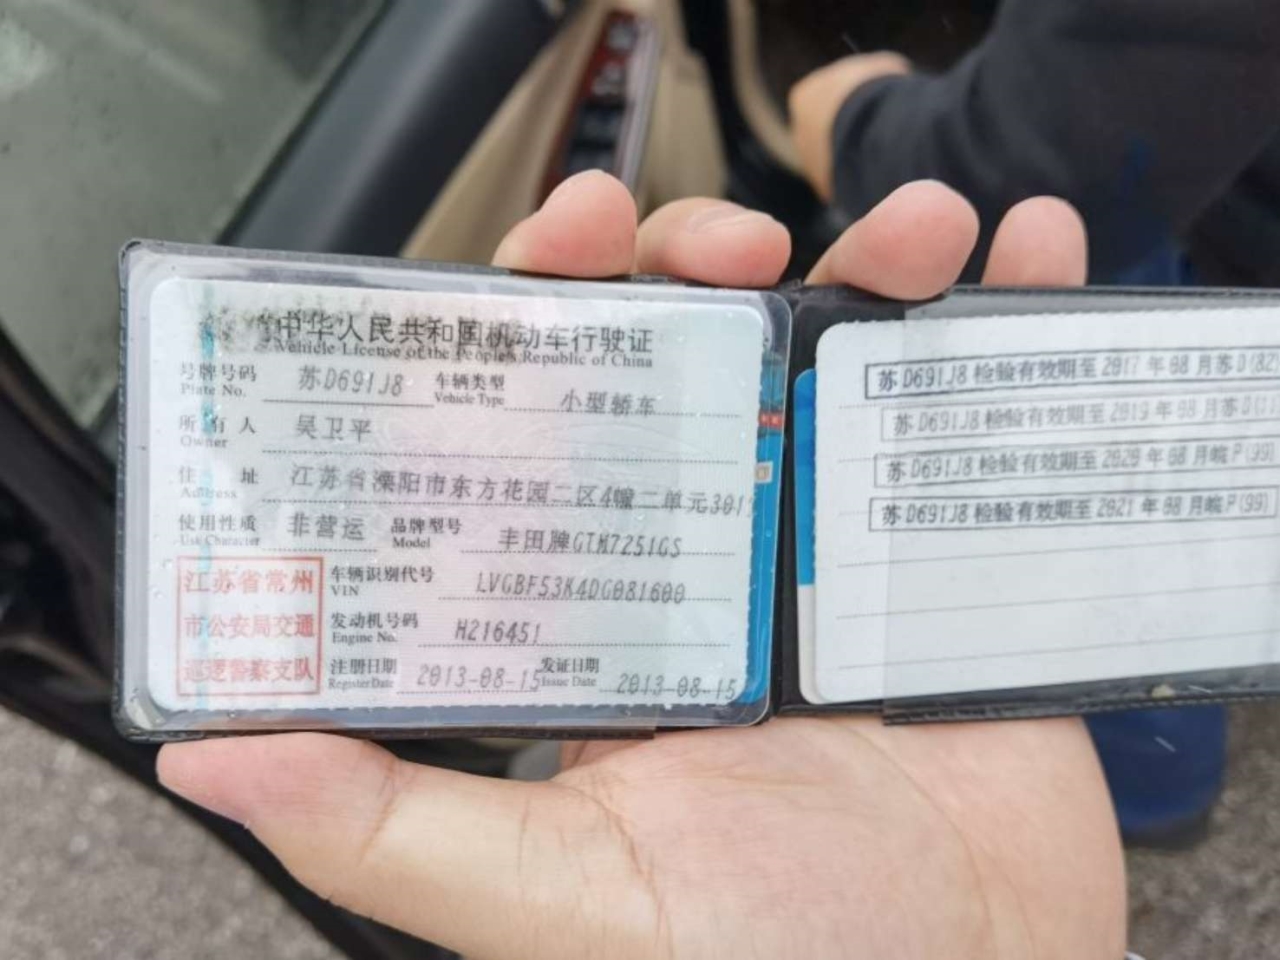 中华人民共和国机动车行驶证
Vehicle License of the People's Republic of China
号牌号码 苏D691J8 车辆类型 小型轿车
Plate No. Vehicle Type
所有人 吴卫平
Owner
住址 江苏省溧阳市东方花园二区4幢二单元301
Address
使用性质 非营运 品牌型号 丰田牌GTM7251GS
Use Character Model
江苏省常州
市公安局交通
巡逻警察支队
车辆识别代号 LVGBF53K4DG081600
VIN
发动机号码 H216451
Engine No.
注册日期 2013-08-15 发证日期 2013-08-15
Register Date Issue Date
苏D691J8检验有效期至2017年08月苏D(82)
苏D691J8检验有效期至2019年08月苏D
苏D691J8检验有效期至2020年08月皖P(99)
苏D691J8检验有效期至2021年08月皖P(99)